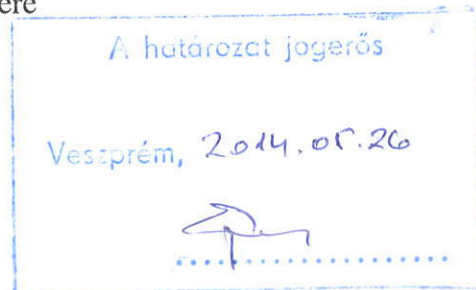 ere
A határozat jogerős
Veszprém, 2014.05.26